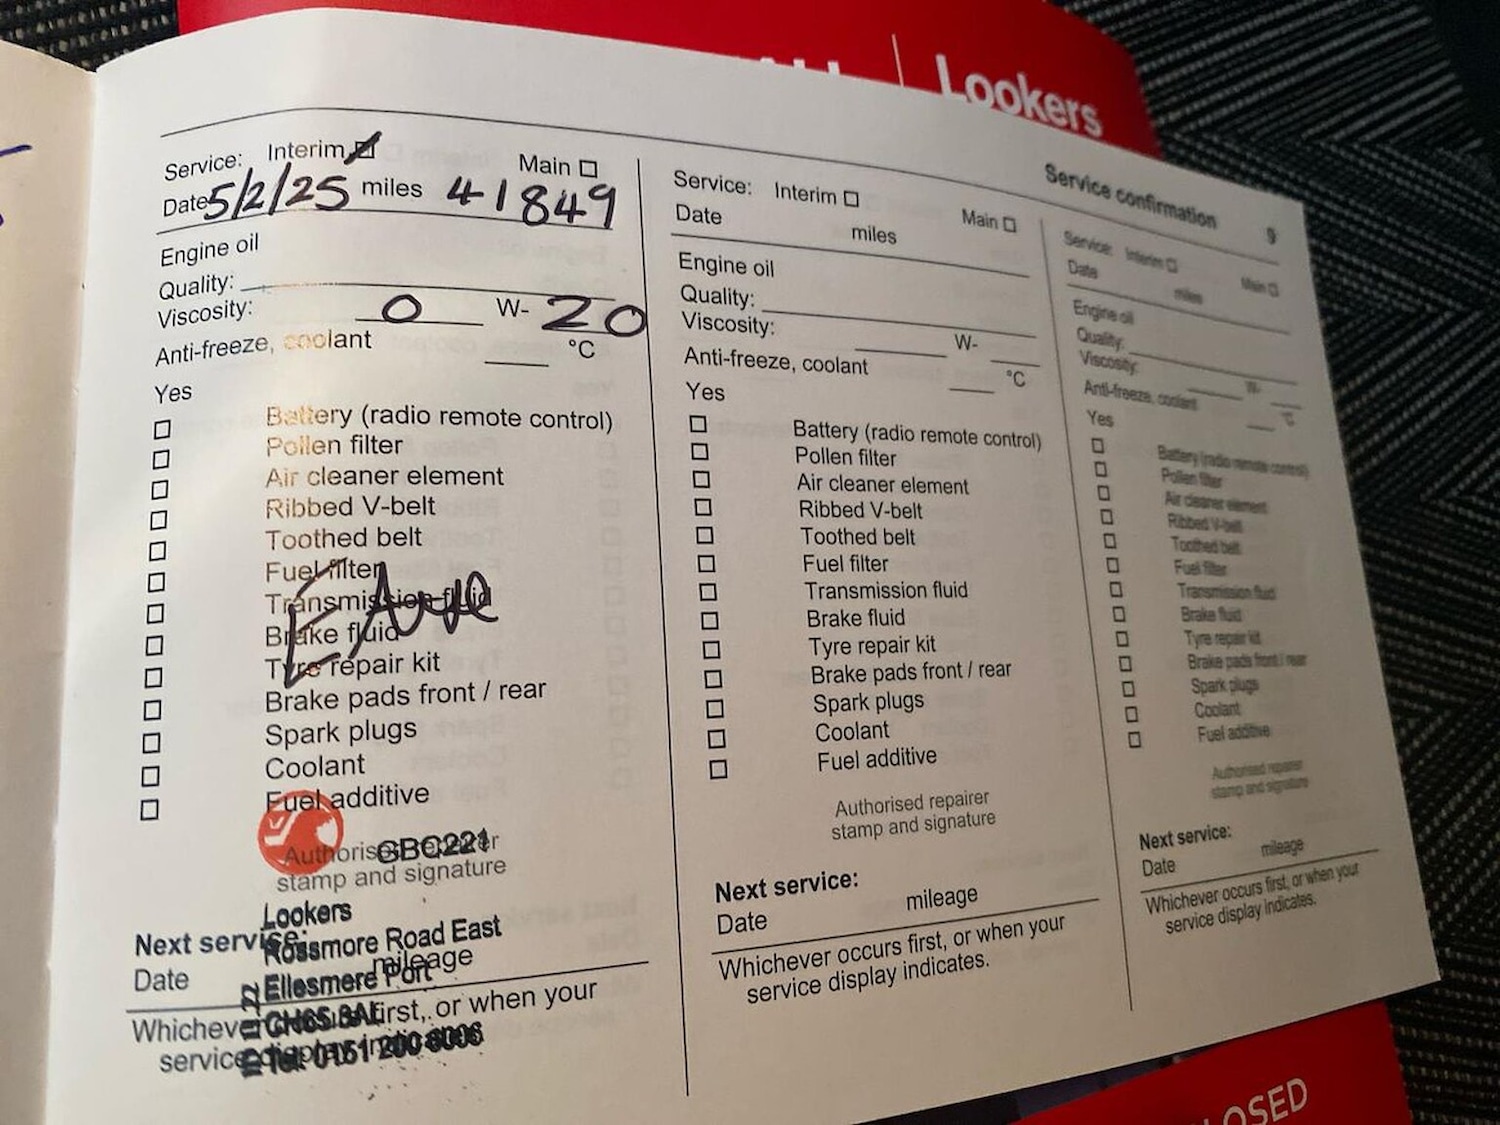 Lookers
Service confirmation 9
Service: Interim Main
Date 5/2/25 miles 41849
Engine oil
Quality:
Viscosity: 0 W- 20
Anti-freeze, coolant °C
Yes
Battery (radio remote control)
Pollen filter
Air cleaner element
Ribbed V-belt
Toothed belt
Fuel filter
Transmission fluid
Brake fluid
Tyre repair kit
Brake pads front / rear
Spark plugs
Coolant
Fuel additive
Authorised repairer
stamp and signature
GBC221
Lookers
Rossmore Road East
Ellesmere Port
CH65 3AL
Tel: 0151 200 6006
Next service:
Date mileage
Whichever occurs first, or when your
service display indicates.
Service: Interim Main
Date miles
Engine oil
Quality:
Viscosity: W-
Anti-freeze, coolant °C
Yes
Battery (radio remote control)
Pollen filter
Air cleaner element
Ribbed V-belt
Toothed belt
Fuel filter
Transmission fluid
Brake fluid
Tyre repair kit
Brake pads front / rear
Spark plugs
Coolant
Fuel additive
Authorised repairer
stamp and signature
Next service:
Date mileage
Whichever occurs first, or when your
service display indicates.
Service: Interim Main
Date miles
Engine oil
Quality:
Viscosity: W-
Anti-freeze, coolant °C
Yes
Battery (radio remote control)
Pollen filter
Air cleaner element
Ribbed V-belt
Toothed belt
Fuel filter
Transmission fluid
Brake fluid
Tyre repair kit
Brake pads front / rear
Spark plugs
Coolant
Fuel additive
Authorised repairer
stamp and signature
Next service:
Date mileage
Whichever occurs first, or when your
service display indicates.